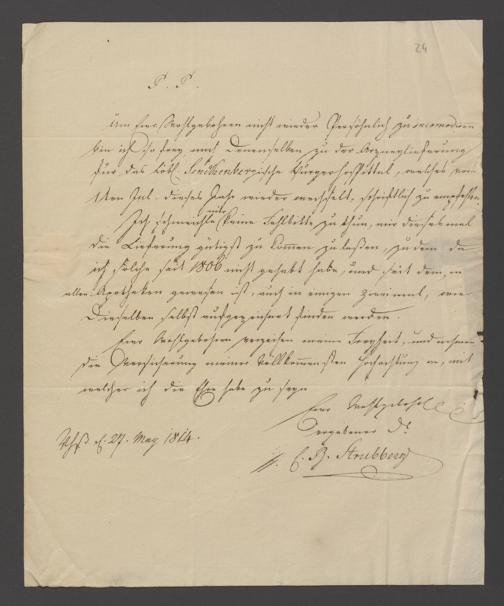 24
P. P.
Um Euer Wohlgebohren nicht wieder Persöhnlich zu incomodiren
bin ich so frey mich Denenselben zu der Arzneylieferung
für das Löbl. Senckenbergische Burgerhospittal, welches vom
1ten Jul. dieses Jahr wieder wechselt, schriftlich zu empfehlen.
Ich schmeichle mir keine Fehlbitte zu thun, mir diesesmal
die Lieferung gütigst zukommen zu laßen, zudem da
ich solche seit 1806 nicht gehabt habe, und seit dem, in
allen Apotheken gewesen ist, auch in einigen zweimal, wie
Dieselben selbst aufgezeichnet finden werden.
Euer Wohlgebohren verzeihen meine Freyheit, und nehmen
die Versicherung meiner Vollkommensten Hochachtung an, mit
welcher ich die Ehre habe zu seyn
Euer Wohlgebohr
ergebener Dr
27. May 1814.
Strubberg